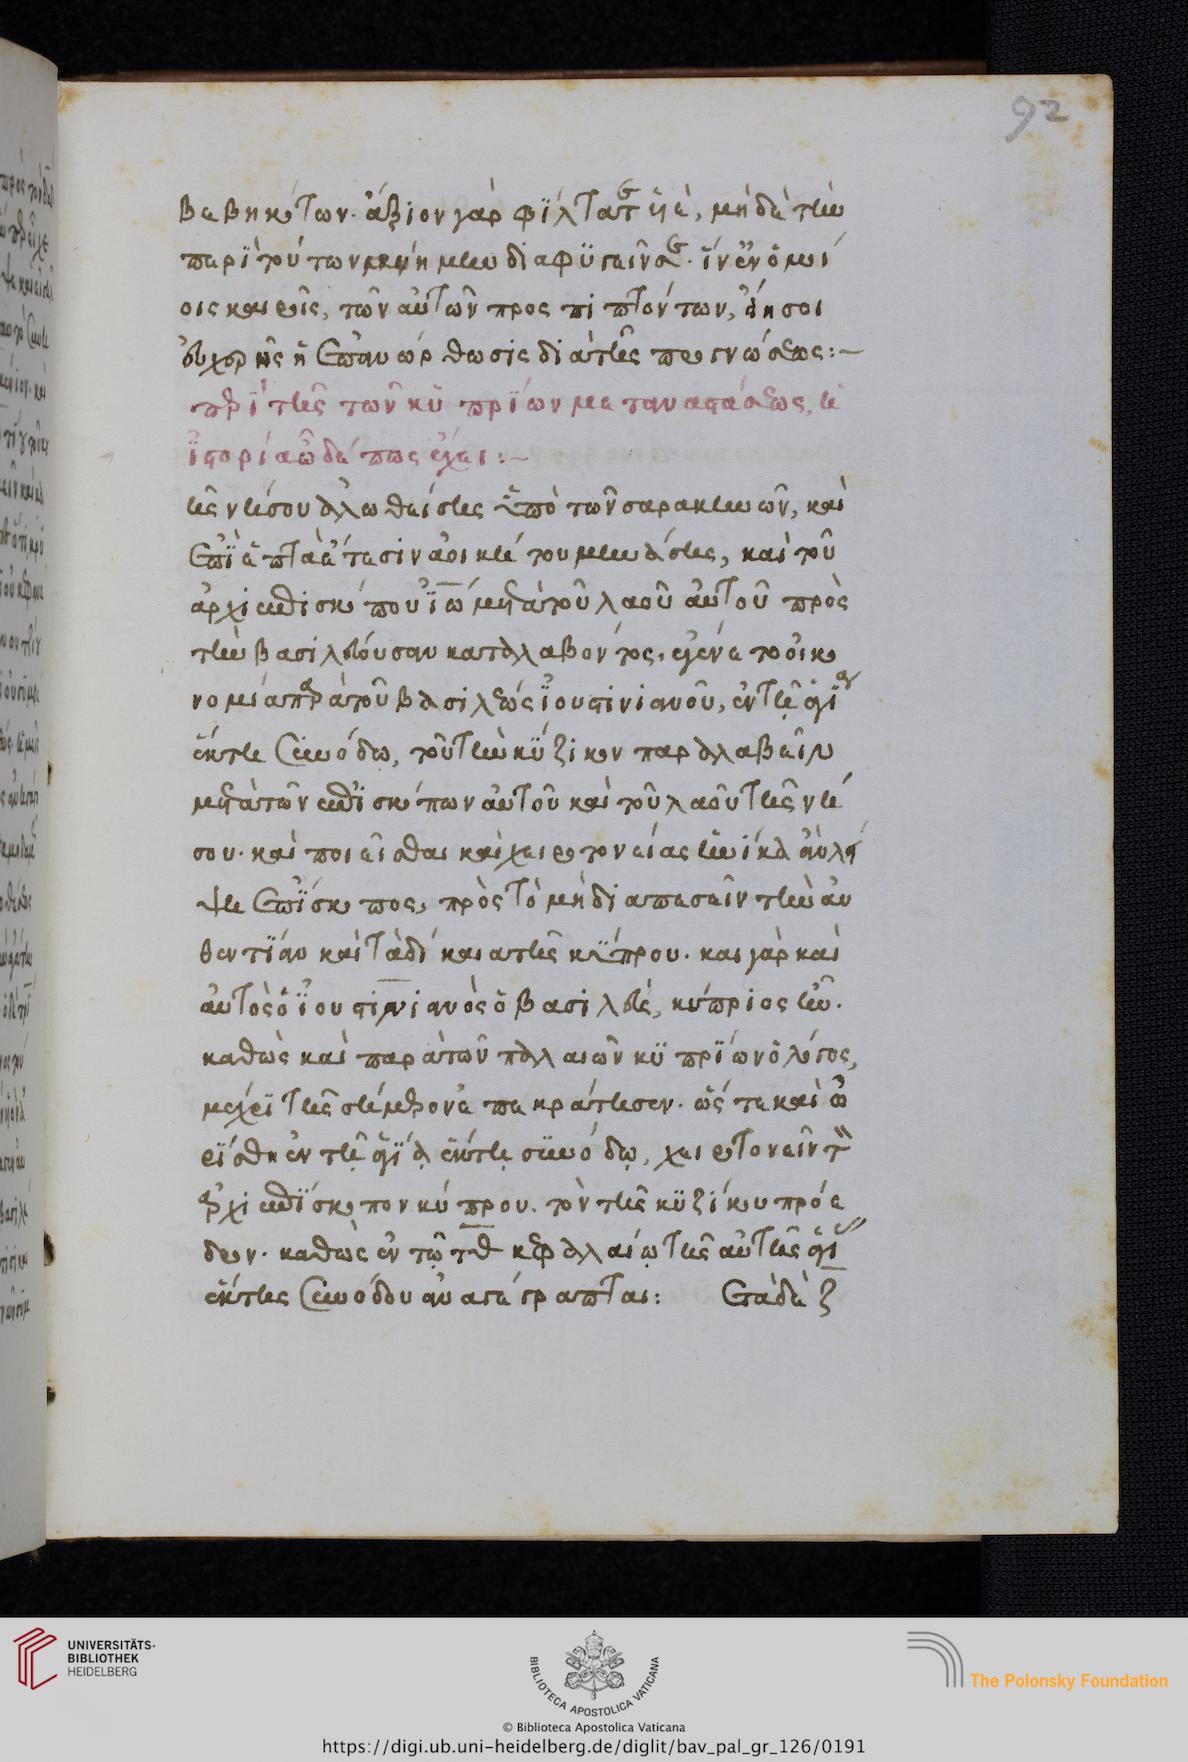 92
βεβηκότων. ἄξιον γὰρ φίλτατε υἱὲ, μηδὲ τὴν
περὶ τούτων μνήμην διαφυγεῖν σε. ἵν' ἐν ὁμοί
οις καιροῖς, τῶν αὐτῶν προσπιπτόντων,
εὐχερὴς ἡ ἐπανόρθωσις διὰ τῆς προγνώσεως:~
περὶ τῆς τῶν κυπρίων μεταναστάσεως, ἡ
ἱστορία ὧδέ πως ἔχει:~
τῆς νήσου ἁλωθείσης ὑπὸ τῶν σαρακηνῶν, καὶ
ἐπὶ ἑπτὰ ἔτεσιν ἀοικήτου μενούσης, καὶ τοῦ
ἀρχιεπισκόπου ἰω μετὰ τοῦ λαοῦ αὐτοῦ πρὸς
τὴν βασιλεύουσαν καταλαβόντος, ἐγένετο οἰκο
νομία παρὰ τοῦ βασιλέως ἰουστινιανοῦ, ἐν τῇ ἁγίᾳ
ἕκτη συνόδω, τοῦ τὴν κύζικον παραλαβεῖν
μετὰ τῶν ἐπισκόπων αὐτοῦ καὶ τοῦ λαοῦ τῆς νή
σου. καὶ ποιεῖσθαι καὶ χειροτονείας ἡνίκα ἂν λεί
ψη ἐπίσκοπος, πρὸς τὸ μὴ διαπεσεῖν τὴν αὐ
θεντίαν καὶ τὰ δίκαια τῆς κύπρου. καὶ γὰρ καὶ
αὐτὸς ὁ ἰουστινιανὸς ὁ βασιλεὺς, κύπριος ἦν.
καθὼς καὶ παρὰ τῶν παλαιῶν κυπρίων ὁ λόγος,
μέχρι τῆς σήμερον ἐπεκράτησεν. ὥστε καὶ ὡ
ρίσθη ἐν τῇ ἁγίᾳ ἕκτῃ συνόδῳ, χειροτονεῖν τὸν
ἀρχιεπίσκοπον κύπρου. τὸν τῆς κυζίκου πρόε
δρον. καθὼς ἐν τῷ λθ κεφαλαίῳ τῆς αὐτῆς ἁγίας
ἕκτης συνόδου ἀναγέγραπται: ἐπὶ δὲ ζ
UNIVERSITÄTS-
BIBLIOTHEK
HEIDELBERG
BIBLIOTECA APOSTOLICA VATICANA
The Polonsky Foundation
© Biblioteca Apostolica Vaticana
https://digi.ub.uni-heidelberg.de/diglit/bav_pal_gr_126/0191